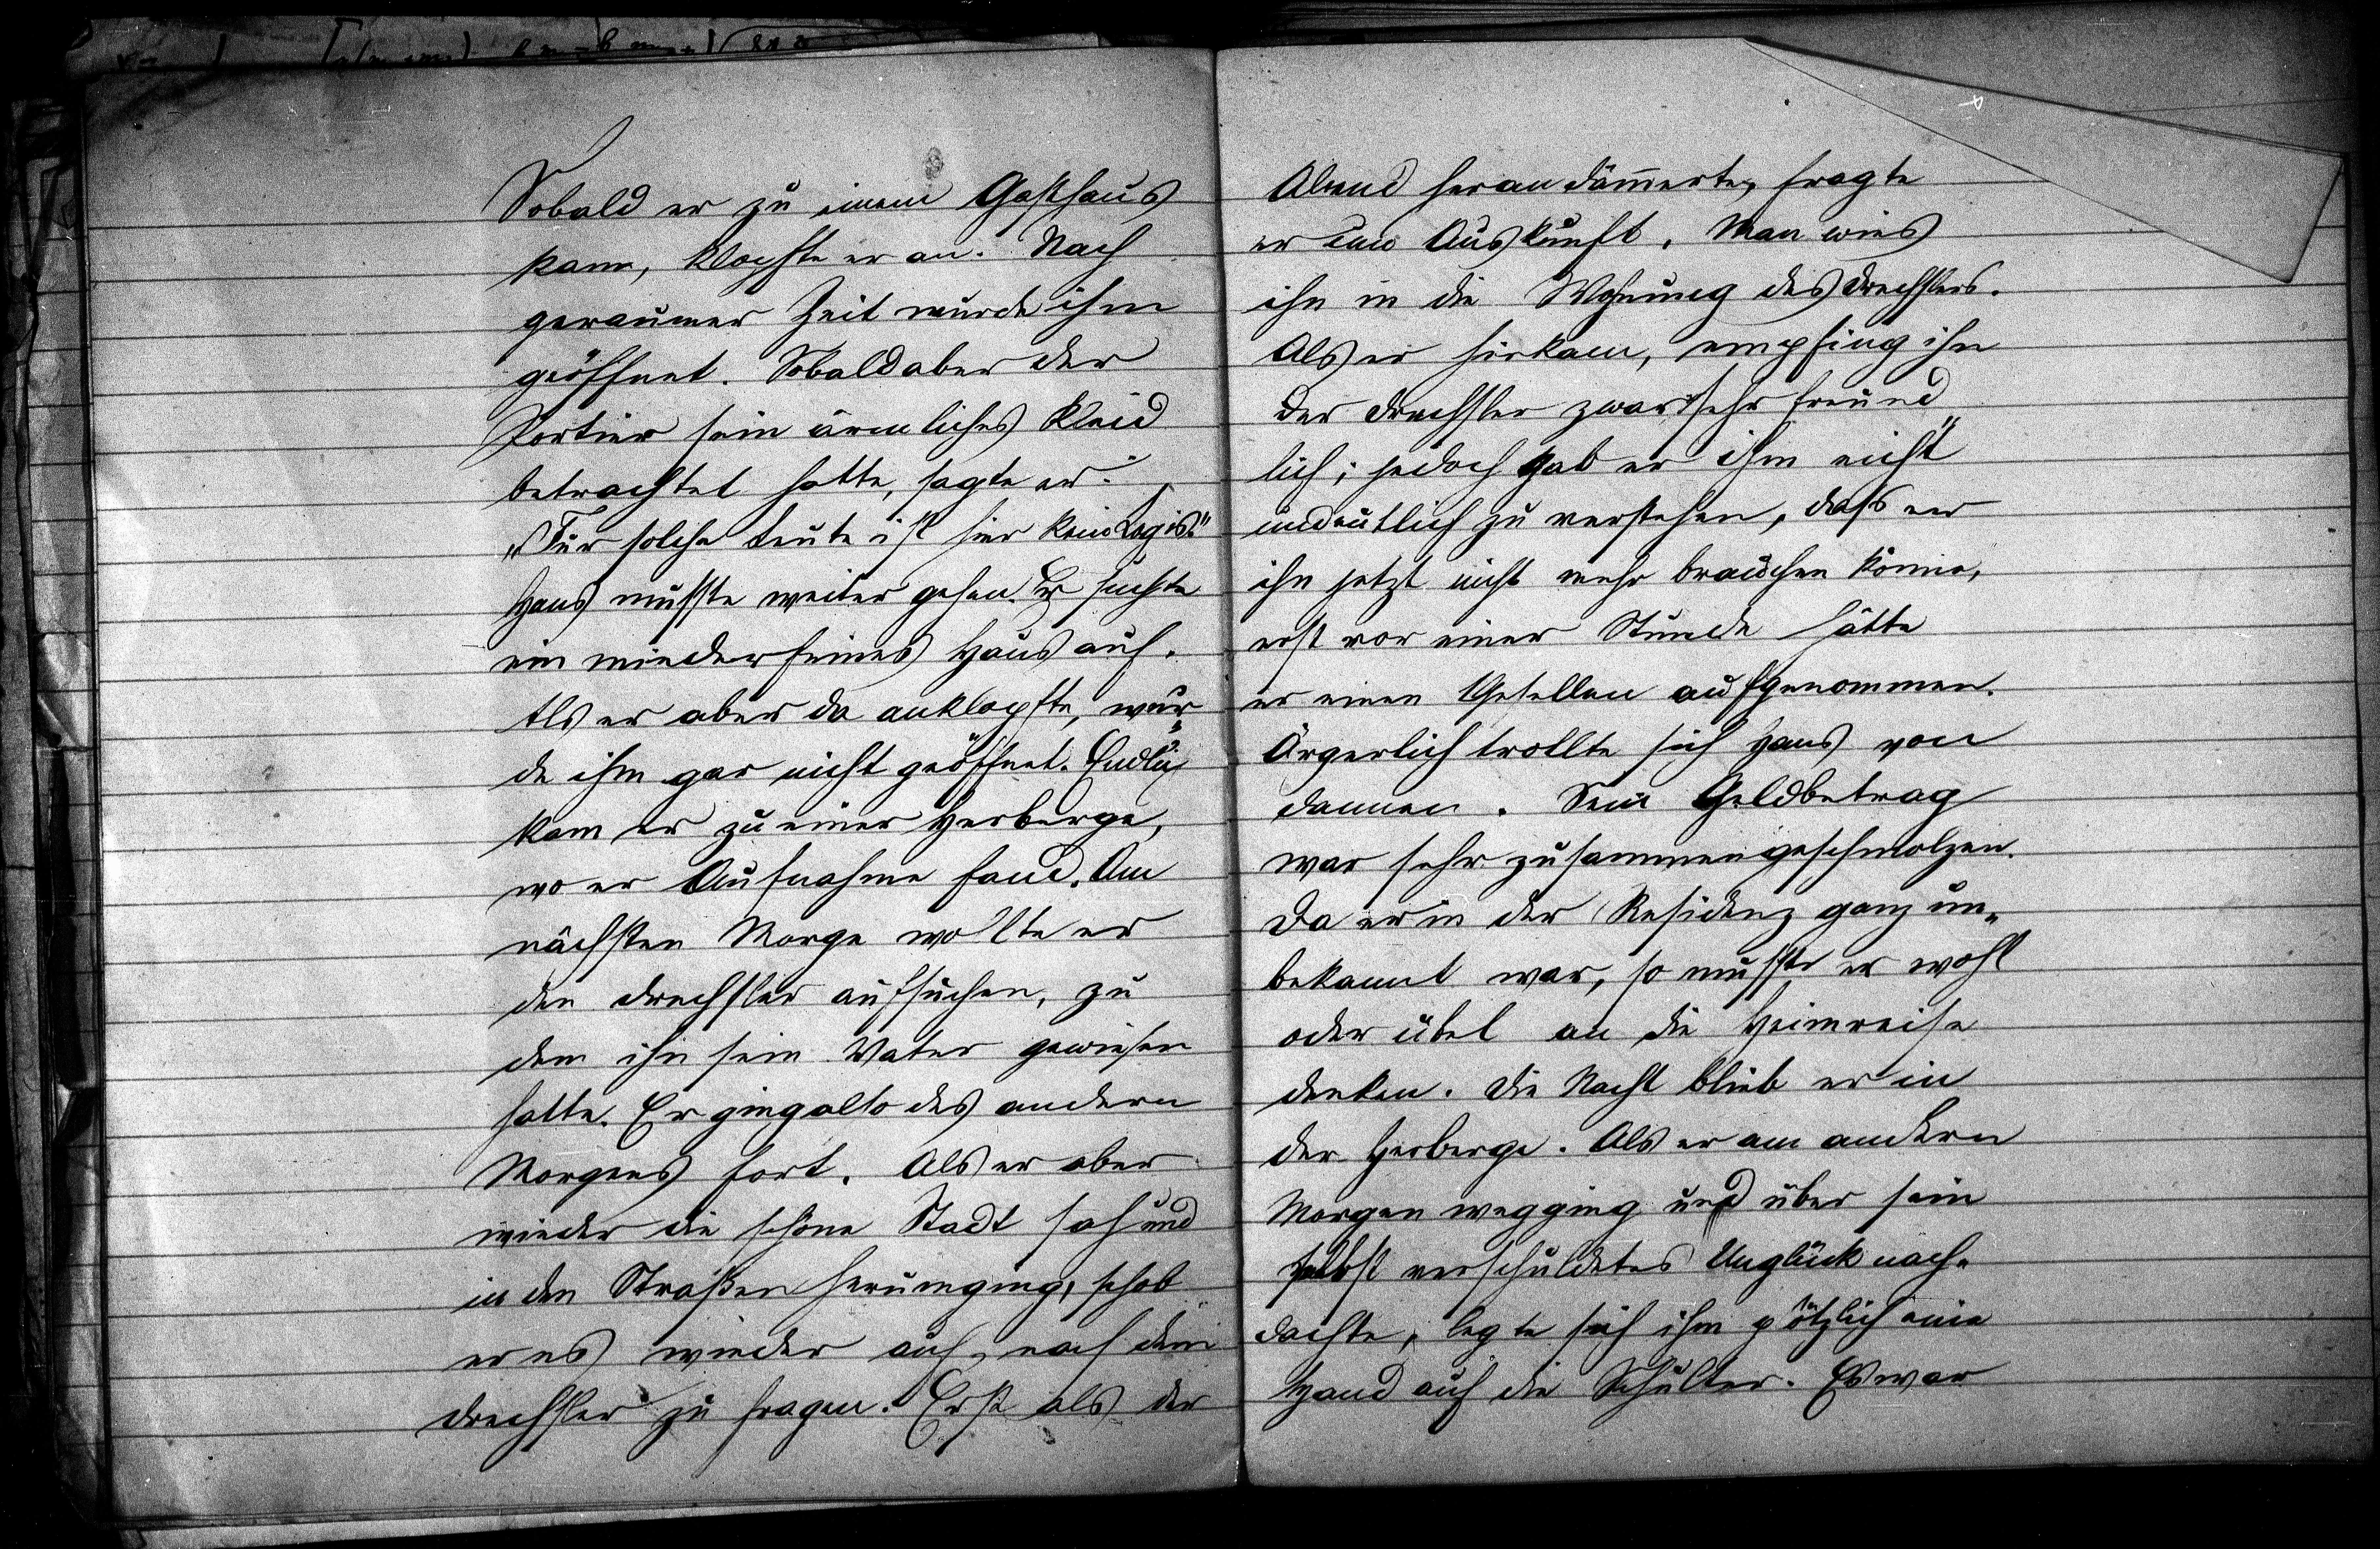 Sobald er zu einem Gasthaus
kam, klopfte er an. Nach
geraumer Zeit wurde ihm
geöffnet. Sobald aber der
Portier sein ärmliches Kleid
betrachtet hatte, sagte er:
„Für solche Leute ist hier kein Logis."
Hans mußte weiter gehen. Er suchte
ein minderfeines Haus auf.
Als er aber da anklopfte, wur„
de ihm gar nicht geöffnet. Endlich
kam er zu einer Herberge,
wo er Aufnahme fand. Am
nächsten Morge wollte er
den Drechsler aufsuchen, zu
dem ihn sein Vater gewiesen
hatte. Er ging also des andern
Morgens fort. Als er aber
wieder die schöne Stadt sah und
in den Straßen herumging, schob
er es wieder auf, nach dem
Drechsler zu fragen. Erst als der
Abend herandämmerte, fragte
er um Auskunft. Man wies
ihn in die Wohnung des Drechslers.
Als er hinkam, empfing ihn
der Drechsler zwar sehr freund„
lich; jedoch gab er ihm nicht
undeutlich zu verstehen, daß er
ihn jetzt nicht mehr brauchen könne,
erst vor einer Stunde hätte
er einen Gesellen aufgenommen.
Ärgerlich trollte sich Hans von
dannen. Sein Geldbetrag
war sehr zusammengeschmolzen.
Da er in der Residenz ganz un„
bekannt war, so mußte er wohl
oder übel an die Heimreise
denken. Die Nacht blieb er in
der Herberge. Als er am andern
Morgen wegging und über sein
selbst verschuldetes Unglück nach„
dachte, legte sich ihm plötzlich eine
Hand auf die Schulter. Es war